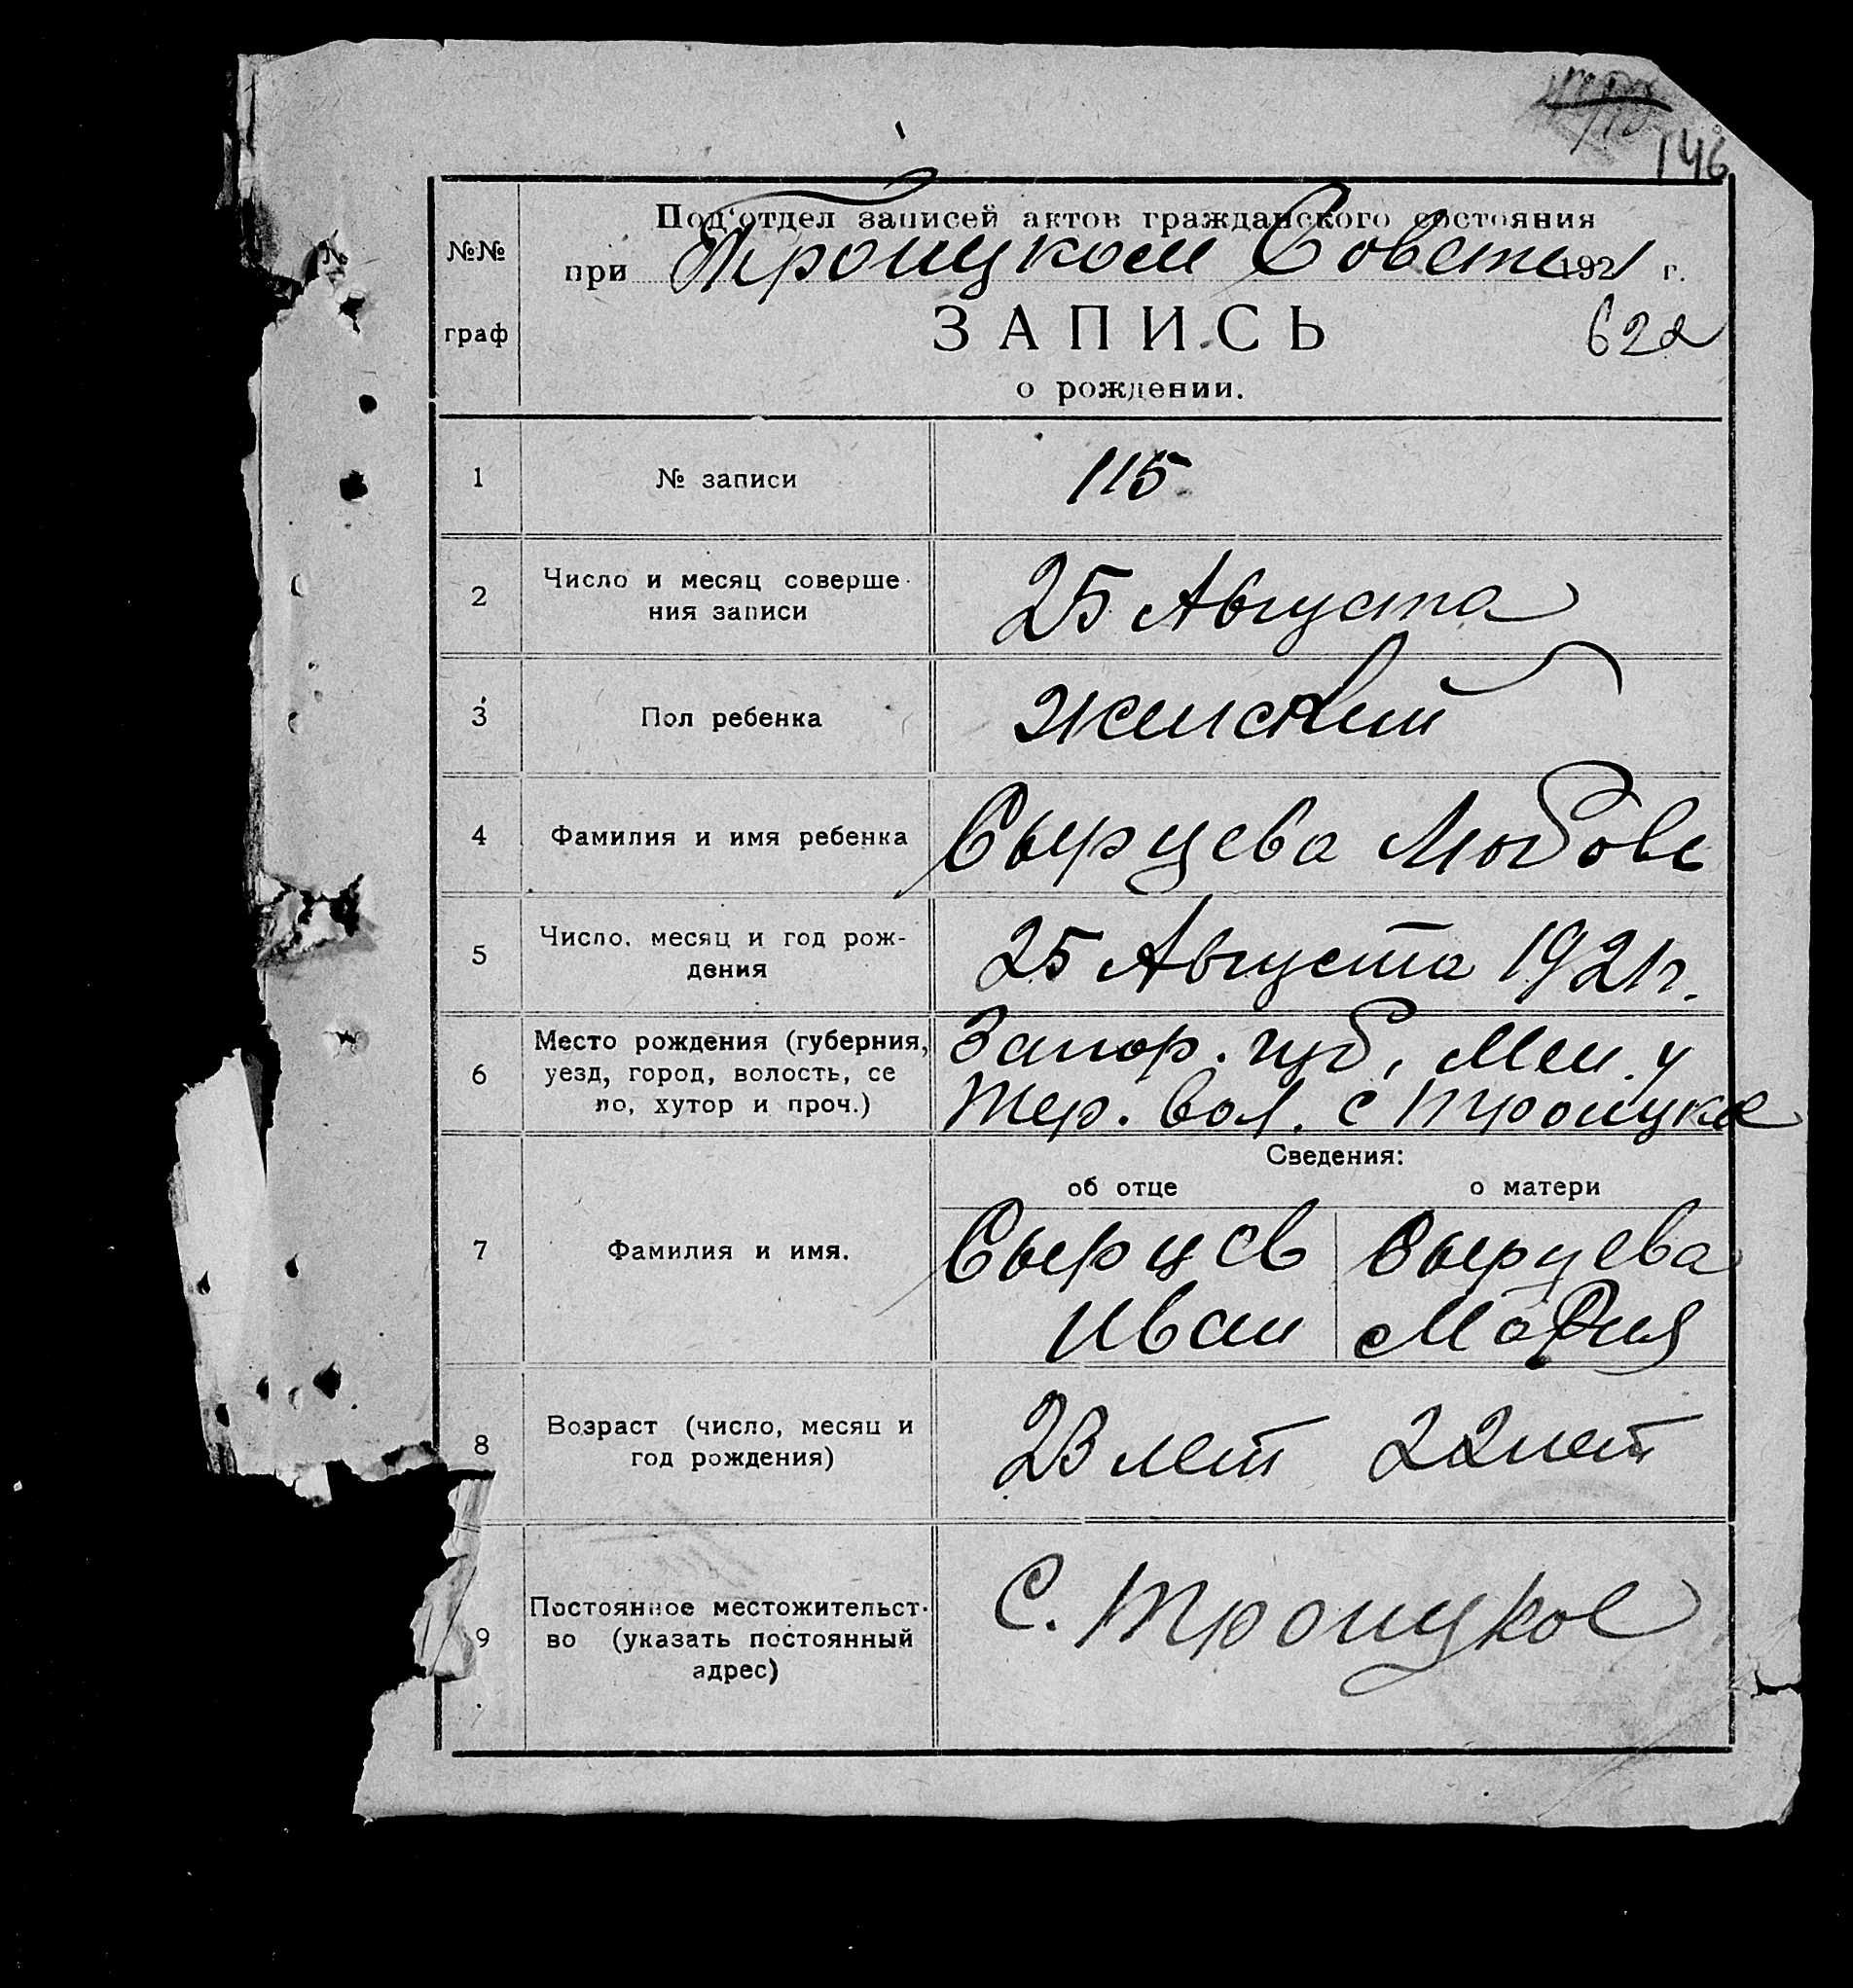 146
№№
граф
Под'отдел записей актов гражданского состояния
при Троицком Совете 1921 г.
ЗАПИСЬ
622
о рождении.
1
№ записи
115
2
Число и месяц соверше-
ния записи
25 Августа
3
Пол ребенка
женский
4
Фамилия и имя ребенка
Сырцева Любовь
5
Число, месяц и год рож-
дения
25 Августа 1921 г.
6
Место рождения (губерния,
уезд, город, волость, се
ло, хутор и проч.)
Запор. губ. Мел. у
Тер. вол. с Троицкое
Сведения:
об отце
о матери
7
Фамилия и имя.
Сырцев
Иван
Сырцева
Мария
8
Возраст (число, месяц и
год рождения)
23 лет
22 лет
9
Постоянное местожительст-
во (указать постоянный
адрес)
С. Троицкое